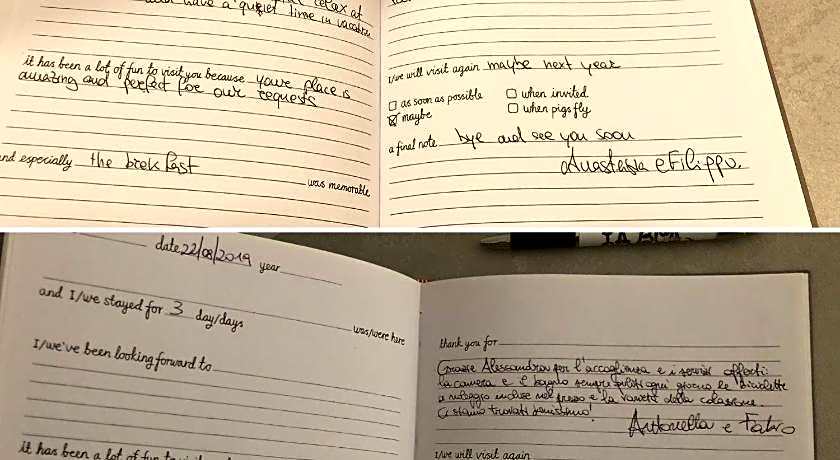 relax at
have a quiet time in vacation
it has been a lot of fun to visit you because your place is
amazing and perfect for our requests
and especially the brekfast
was memorable
I/we will visit again maybe next year
as soon as possible
when invited
maybe
when pigs fly
a final note bye and see you soon
Anastasia e Filippo.
date 22/08/2019 year
and I/we stayed for 3 day/days
was/were here
I/we've been looking forward to
it has been a lot of fun to visit
thank you for
Grazie Alessandra per l'accoglienza e i servizi offerti:
la camera e il bagno sempre puliti ogni giorno le biciclette
a noleggio incluse nel prezzo e la varietà della colazione.
Ci siamo trovati benissimo!
Antonella e Fabio
I/we will visit again